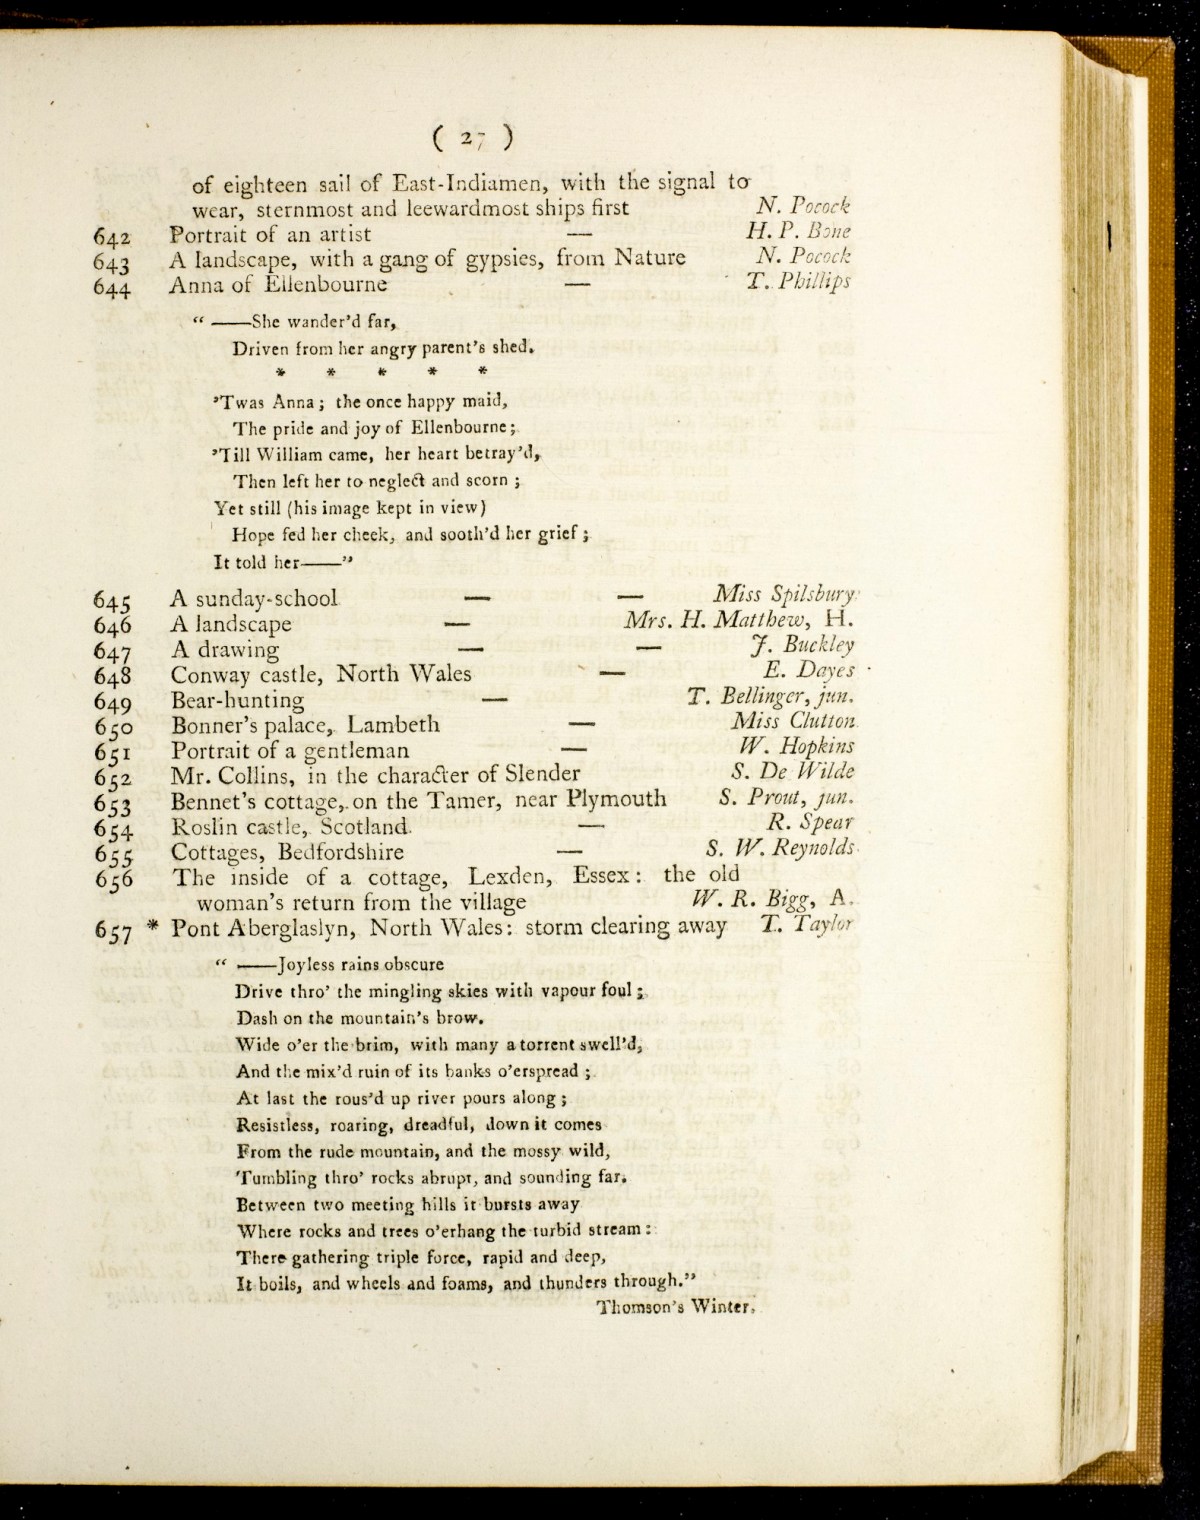 ( 27 )
of eighteen sail of East-Indiamen, with the signal to
wear, sternmost and leewardmost ships first N. Pocock
642 Portrait of an artist — H. P. Bone
643 A landscape, with a gang of gypsies, from Nature N. Pocock
644 Anna of Ellenbourne — T. Phillips
“ ——She wander’d far,
Driven from her angry parent’s shed.
* * * * *
’Twas Anna; the once happy maid,
The pride and joy of Ellenbourne;
’Till William came, her heart betray’d,
Then left her to neglect and scorn;
Yet still (his image kept in view)
Hope fed her cheek, and sooth’d her grief;
It told her——”
645 A sunday-school — — Miss Spilsbury
646 A landscape — Mrs. H. Matthew, H.
647 A drawing — — J. Buckley
648 Conway castle, North Wales — E. Dayes
649 Bear-hunting — T. Bellinger, jun.
650 Bonner’s palace, Lambeth — Miss Clutton
651 Portrait of a gentleman — W. Hopkins
652 Mr. Collins, in the character of Slender S. De Wilde
653 Bennet’s cottage, on the Tamer, near Plymouth S. Prout, jun.
654 Roslin castle, Scotland. — R. Spear
655 Cottages, Bedfordshire — S. W. Reynolds
656 The inside of a cottage, Lexden, Essex: the old
woman’s return from the village W. R. Bigg, A.
657 * Pont Aberglaslyn, North Wales: storm clearing away T. Taylor
“ ——Joyless rains obscure
Drive thro’ the mingling skies with vapour foul;
Dash on the mountain’s brow.
Wide o’er the brim, with many a torrent swell’d,
And the mix’d ruin of its banks o’erspread;
At last the rous’d up river pours along;
Resistless, roaring, dreadful, down it comes
From the rude mountain, and the mossy wild,
Tumbling thro’ rocks abrupt, and sounding far.
Between two meeting hills it bursts away
Where rocks and trees o’erhang the turbid stream:
There gathering triple force, rapid and deep,
It boils, and wheels and foams, and thunders through.”
Thomson’s Winter.